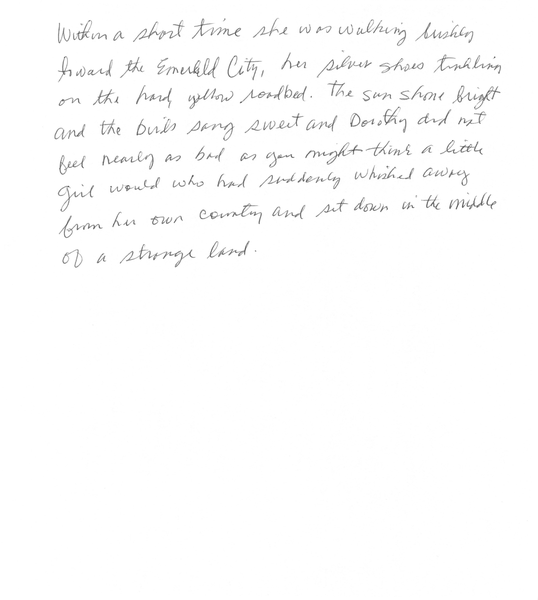 Within a short time she was walking briskly
toward the Emerald City, her silver shoes tinkling
on the hard yellow roadbed. The sun shone bright
and the birds sang sweet and Dorothy did not
feel nearly as bad as you might think a little
girl would who had suddenly whisked away
from her own country and set down in the middle
of a strange land.